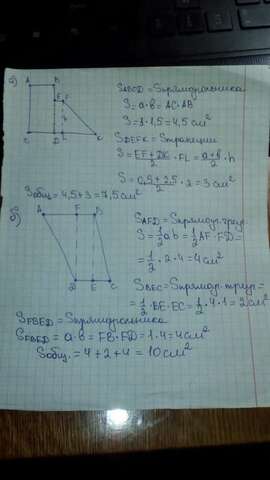 а)
A B
E F
C D L K
SABCD = Sпрямоугольника
S = a·b = AC·AB
S = 3·1,5 = 4,5 см²
SDEFK = Sтрапеции
S = EF+DK/2 · FL = a+b/2 · h
S = 0,5+2,5/2 · 2 = 3 см²
Sобщ = 4,5+3 = 7,5 см²
б)
A F B
D E C
SAFD = Sпрямоуг. треуг.
S = 1/2 ab = 1/2 AF · FD =
= 1/2 · 2 · 4 = 4 см²
SBEC = Sпрямоуг. треуг. =
= 1/2 · BE · EC = 1/2 · 4 · 1 = 2 см²
SFBED = Sпрямоугольника
SFBED = a·b = FB · FD = 1·4 = 4 см²
Sобщ. = 4+2+4 = 10 см²